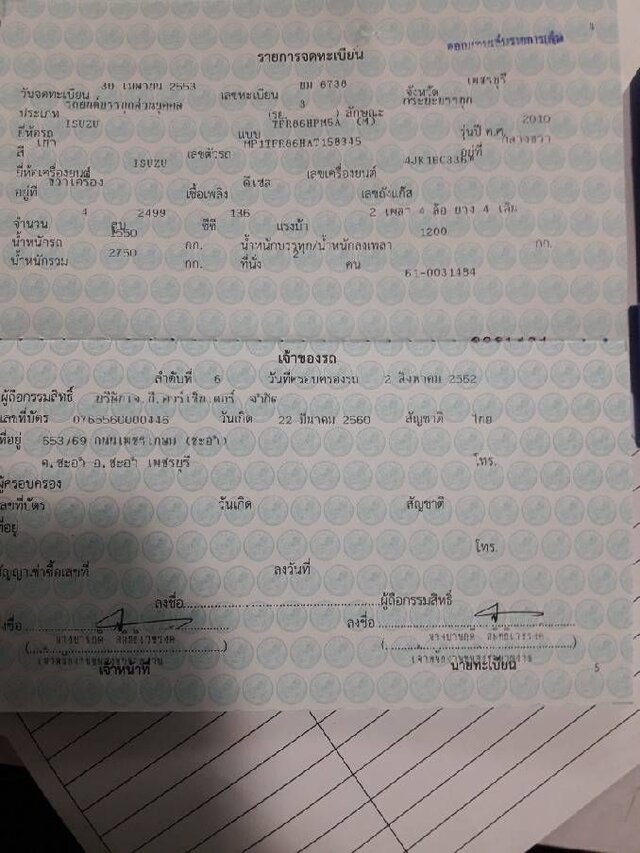 4
รายการจดทะเบียน
วันจดทะเบียน 30 เมษายน 2553 เลขทะเบียน ยม 6738 จังหวัด เพชรบุรี
ประเภท รถยนต์บรรทุกส่วนบุคคล (รย. 3 ) ลักษณะ กระบะบรรทุก
ยี่ห้อรถ ISUZU แบบ TFR86HPM5A (M) รุ่นปี ค.ศ. 2010
สี เทา เลขตัวรถ MP1TFR86HAT158345 อยู่ที่ กลางขวา
ยี่ห้อเครื่องยนต์ ISUZU เลขเครื่องยนต์
อยู่ที่ ขวาเครื่อง เชื้อเพลิง ดีเซล เลขถังแก๊ส
จำนวน 4 สูบ 2499 ซีซี 136 แรงม้า 2 เพลา 4 ล้อ ยาง 4 เส้น
น้ำหนักรถ 1550 กก. น้ำหนักบรรทุก/น้ำหนักลงเพลา 1200 กก.
น้ำหนักรวม 2750 กก. ที่นั่ง 2 คน
61-0031484
เจ้าของรถ
ลำดับที่ 6 วันที่ครอบครองรถ 2 สิงหาคม 2562
ผู้ถือกรรมสิทธิ์ บริษัท จำกัด
เลขที่บัตร 0765560000446 วันเกิด 22 มีนาคม 2560 สัญชาติ ไทย
ที่อยู่ 553/69 ถนนเพชรเกษม (ชะอำ)
ต.ชะอำ อ.ชะอำ เพชรบุรี โทร.
ผู้ครอบครอง
เลขที่บัตร วันเกิด สัญชาติ
ที่อยู่
โทร.
สัญญาเช่าซื้อเลขที่ ลงวันที่
ลงชื่อ ผู้ถือกรรมสิทธิ์
ลงชื่อ ลงชื่อ
เจ้าหน้าที่ นายทะเบียน
5